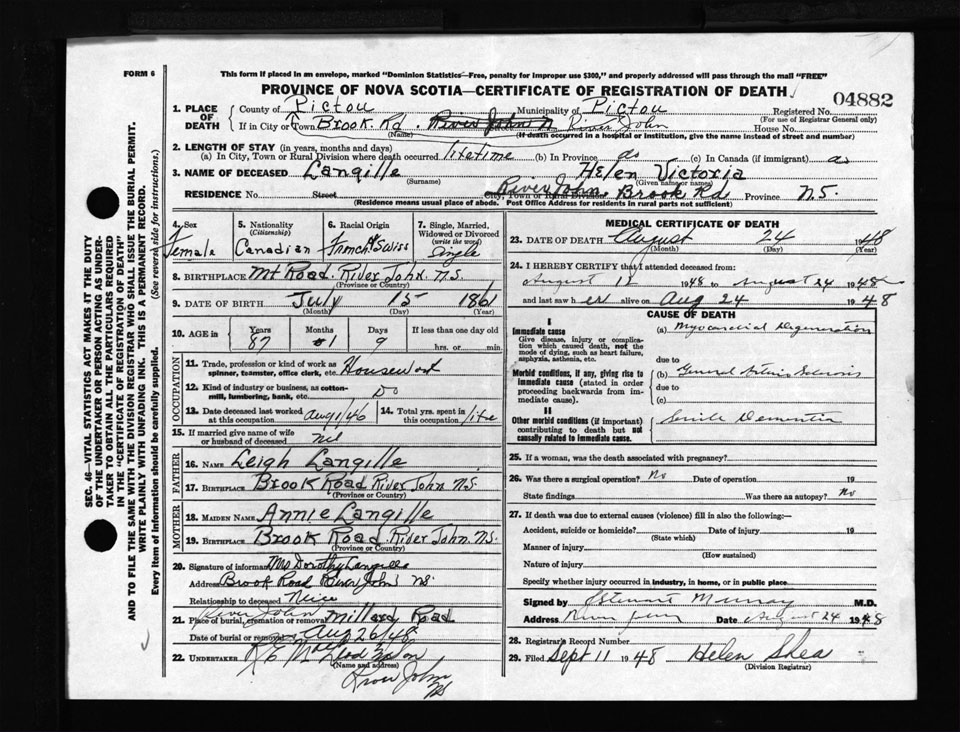 FORM 6
This form if placed in an envelope, marked "Dominion Statistics—Free, penalty for improper use $300," and properly addressed will pass through the mail "FREE"
PROVINCE OF NOVA SCOTIA—CERTIFICATE OF REGISTRATION OF DEATH
04882
1. PLACE OF DEATH
County of Pictou Municipality of Pictou Registered No.
(For use of Registrar General only)
If in City or Town Brook Rd. River John River John House No.
(Name) (If death occurred in a hospital or institution, give the name instead of street and number)
2. LENGTH OF STAY (in years, months and days)
(a) In City, Town or Rural Division where death occurred lifetime (b) In Province do (c) In Canada (if immigrant) do
3. NAME OF DECEASED Langille Helen Victoria
(Surname) (Given name or names)
RESIDENCE No. Street River John Brook Rd Province N.S.
City, Town or Rural Division
(Residence means usual place of abode. Post Office Address for residents in rural parts not sufficient)
4. Sex Female
5. Nationality (Citizenship) Canadian
6. Racial Origin French & Swiss
7. Single, Married, Widowed or Divorced (write the word) Single
8. BIRTHPLACE Mt Road. River John. N.S.
(Province or Country)
9. DATE OF BIRTH July 15 1861
(Month) (Day) (Year)
10. AGE in Years 87 Months 1 Days 9 If less than one day old
hrs. or min.
OCCUPATION
11. Trade, profession or kind of work as spinner, teamster, office clerk, etc. Housework
12. Kind of industry or business, as cotton-mill, lumbering, bank, etc. Do
13. Date deceased last worked at this occupation Aug 1/46 14. Total yrs. spent in this occupation life
15. If married give name of wife or husband of deceased Nil
FATHER
16. NAME Leigh Langille
17. BIRTHPLACE Brook Road River John N.S.
(Province or Country)
MOTHER
18. MAIDEN NAME Annie Langille
19. BIRTHPLACE Brook Road. River John. N.S.
(Province or Country)
20. Signature of informant Mrs Dorothy Langille
Address Brook Road River John N.S.
Relationship to deceased Neice
River John
21. Place of burial, cremation or removal Millard Road
Date of burial or removal Aug 26/48
22. UNDERTAKER
(Name and address)
River John
N.S.
MEDICAL CERTIFICATE OF DEATH
23. DATE OF DEATH August 24 1948
(Month) (Day) (Year)
24. I HEREBY CERTIFY that I attended deceased from:
August 12 1948 to August 24 1948
and last saw her alive on Aug 24 1948
CAUSE OF DEATH
I
Immediate cause
Give disease, injury or complication which caused death, not the mode of dying, such as heart failure, asphyxia, asthenia, etc.
(a) Myocardial Degeneration
due to
Morbid conditions, if any, giving rise to immediate cause (stated in order proceeding backwards from immediate cause).
(b) General Arterio Sclerosis
due to
(c)
II
Other morbid conditions (if important) contributing to death but not causally related to immediate cause.
Senile Dementia
25. If a woman, was the death associated with pregnancy?
26. Was there a surgical operation? No Date of operation 19
State findings Was there an autopsy? No
27. If death was due to external causes (violence) fill in also the following:—
Accident, suicide or homicide? Date of injury 19
(State which)
Manner of injury
(How sustained)
Nature of injury
Specify whether injury occurred in industry, in home, or in public place.
Signed by Stewart Murray M.D.
Address River John Date August 24 1948
28. Registrar's Record Number
29. Filed Sept 11 1948 Helen Shea
(Division Registrar)
SEC. 46—VITAL STATISTICS ACT MAKES IT THE DUTY
OF THE UNDERTAKER OR PERSON ACTING AS UNDER-
TAKER TO OBTAIN ALL THE PARTICULARS REQUIRED
IN THE "CERTIFICATE OF REGISTRATION OF DEATH"
AND TO FILE THE SAME WITH THE DIVISION REGISTRAR WHO SHALL ISSUE THE BURIAL PERMIT.
WRITE PLAINLY WITH UNFADING INK. THIS IS A PERMANENT RECORD.
Every item of information should be carefully supplied. (See reverse side for instructions.)